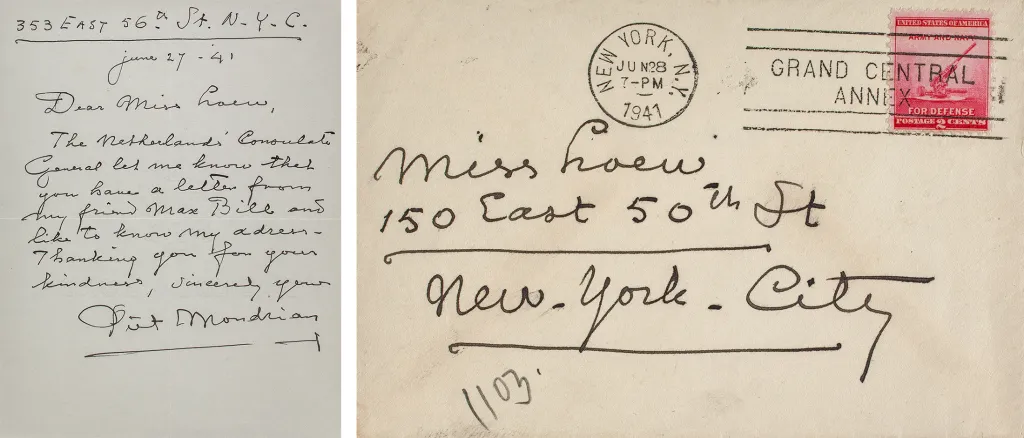 353 EAST 56th St. N-Y-C.
june 27-'41
Dear Miss Loew,
The Netherlands' Consulate
General let me know that
you have a letter from
my friend Max Bill and
like to know my adress-
Thanking you for your
kindness, sincerely yours
Piet Mondrian
NEW YORK, N.Y.
JUN 28
7-PM
1941
GRAND CENTRAL
ANNEX
UNITED STATES OF AMERICA
ARMY AND NAVY
FOR DEFENSE
POSTAGE 2 CENTS
Miss Loew
150 East 50th St
New-York-City
1103.